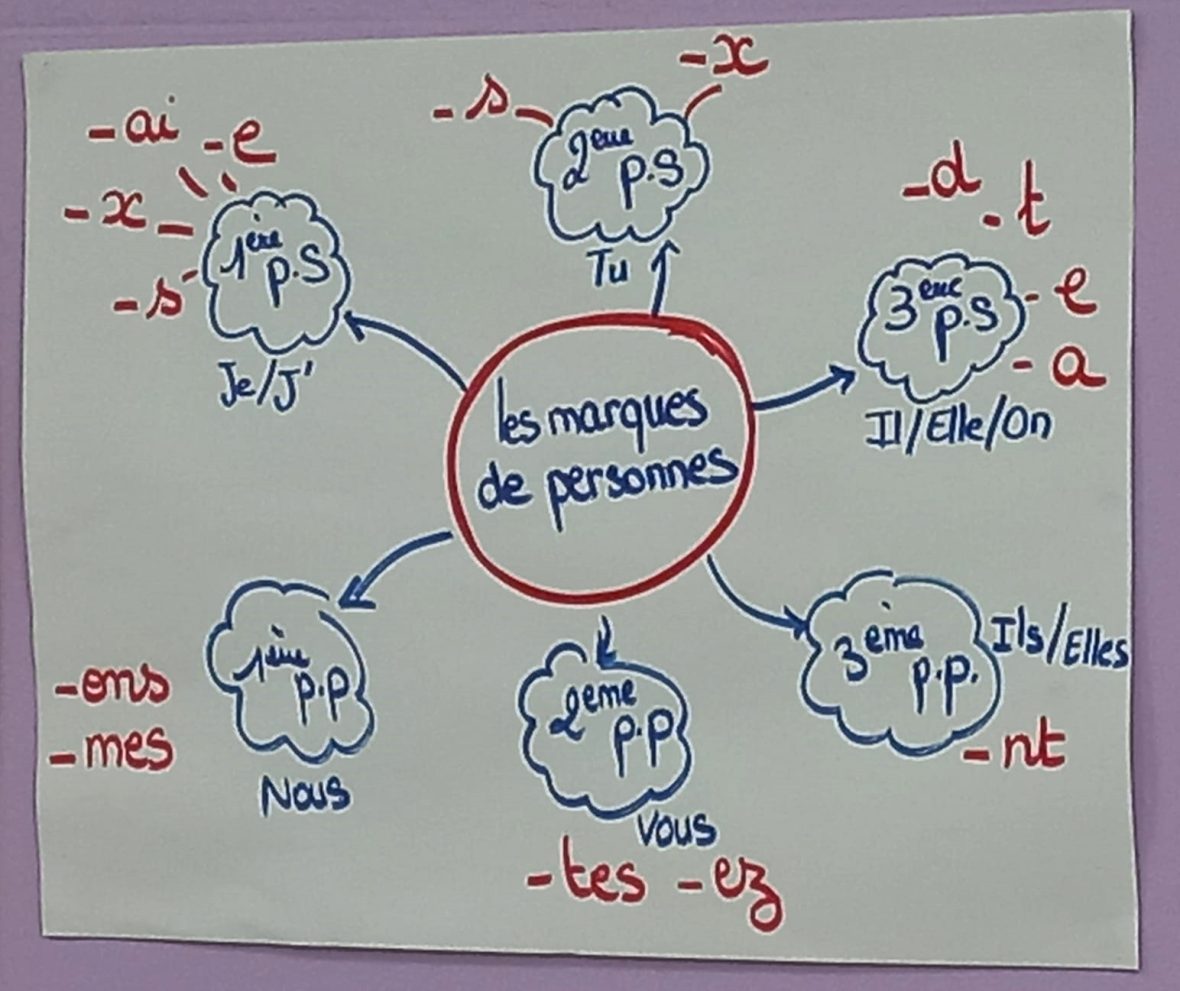 les marques
de personnes
-ai -e
-x
-s
1ère
p.S
Je/J'
-s -x
2ème
p.S
Tu
-d -t
-e
-a
3ème
p.S
Il/Elle/On
-ons
-mes
1ère
p.p
Nous
2eme
p.p
Vous
-tes -ez
3ème
p.p.
Ils/Elles
-nt